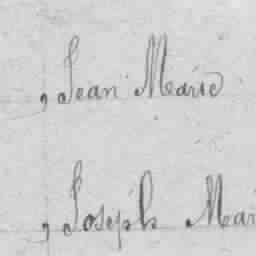 , Jean Marie
, Joseph Mari